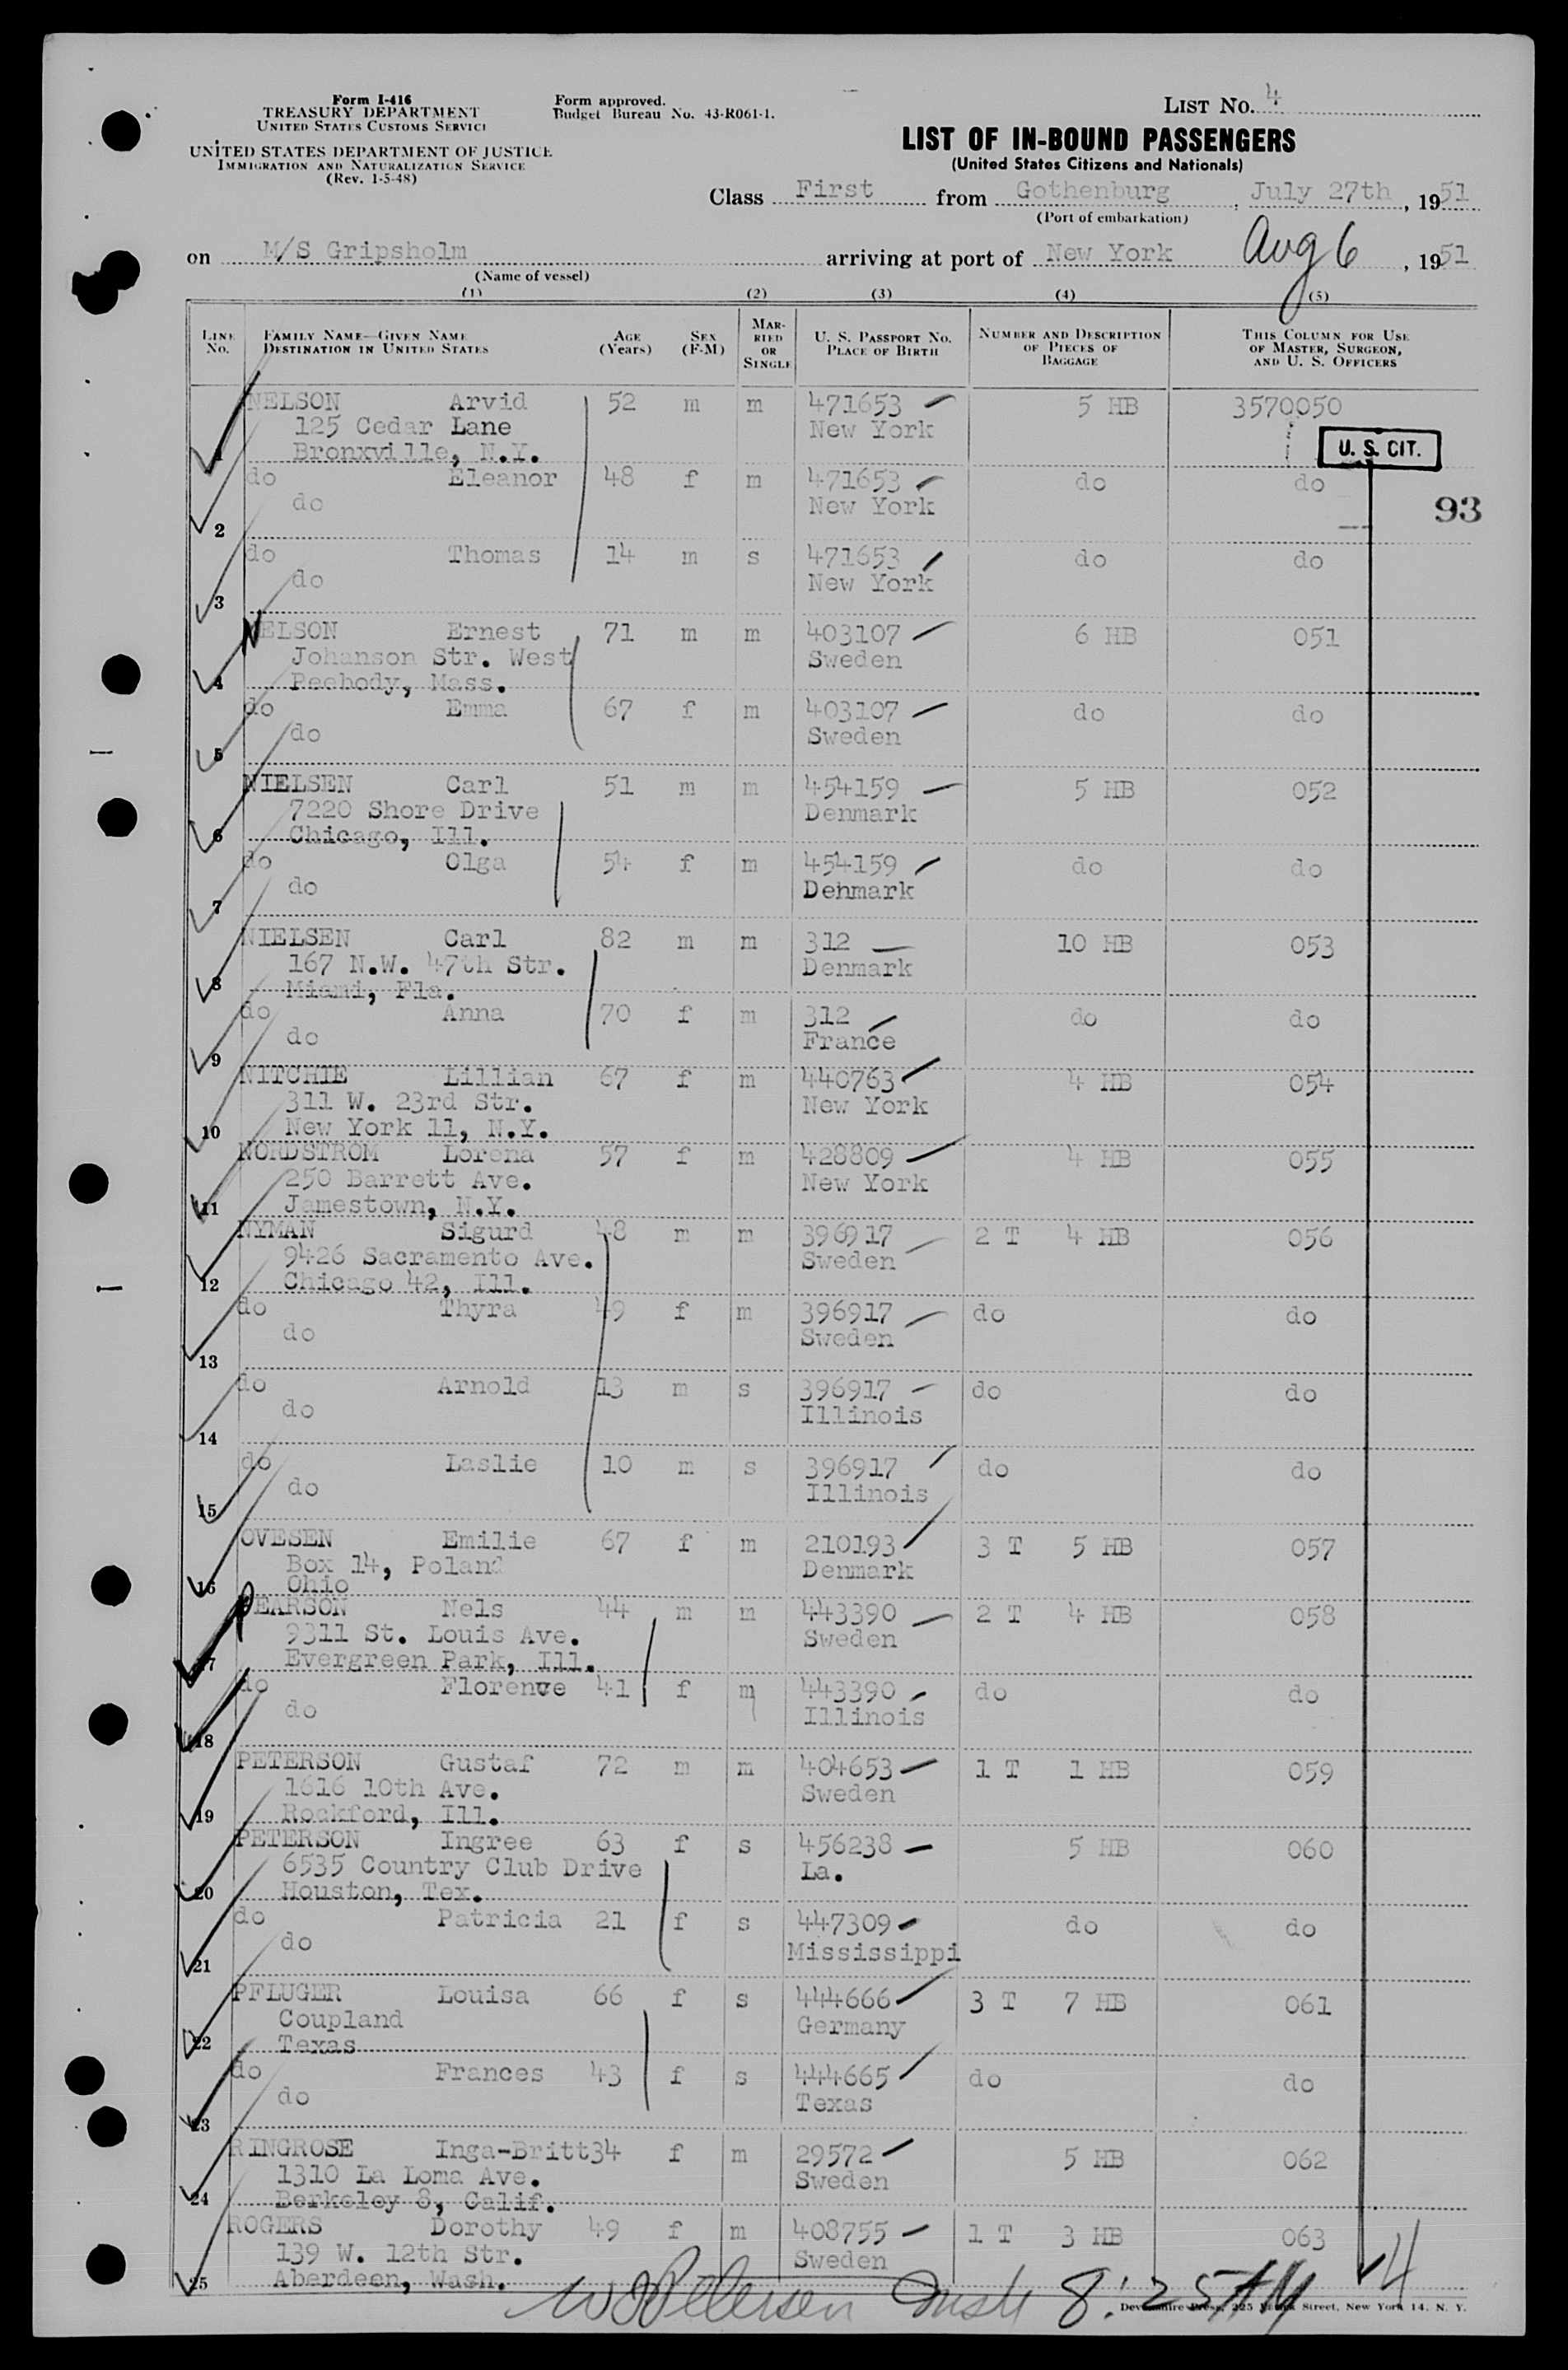 Form I-416
TREASURY DEPARTMENT
UNITED STATES CUSTOMS SERVICE
UNITED STATES DEPARTMENT OF JUSTICE
IMMIGRATION AND NATURALIZATION SERVICE
(Rev. 1-5-48)
Form approved.
Budget Bureau No. 43-R061-1.
LIST NO. 4
LIST OF IN-BOUND PASSENGERS
(United States Citizens and Nationals)
Class First from Gothenburg, July 27th, 1951
(Port of embarkation)
on M/S Gripsholm arriving at port of New York Aug 6, 1951
(Name of vessel)
(1) (2) (3) (4) (5)
LINE NO. FAMILY NAME—GIVEN NAME DESTINATION IN UNITED STATES AGE (Years) SEX (F-M) MARRIED OR SINGLE U. S. PASSPORT NO. PLACE OF BIRTH NUMBER AND DESCRIPTION OF PIECES OF BAGGAGE THIS COLUMN FOR USE OF MASTER, SURGEON, AND U. S. OFFICERS
NELSON Arvid 52 m m 471653 5 HB 3570050
125 Cedar Lane New York
1 Bronxville, N.Y. U. S. CIT.
do Eleanor 48 f m 471653 do do
do New York 93
2
do Thomas 14 m s 471653 do do
do New York
3
NELSON Ernest 71 m m 403107 6 HB 051
Johanson Str. West Sweden
4 Peebody, Mass.
do Emma 67 f m 403107 do do
do Sweden
5
NIELSEN Carl 51 m m 454159 5 HB 052
7220 Shore Drive Denmark
6 Chicago, Ill.
do Olga 54 f m 454159 do do
do Denmark
7
NIELSEN Carl 82 m m 312 10 HB 053
167 N.W. 47th Str. Denmark
8 Miami, Fla.
do Anna 70 f m 312 do do
do France
9
NITCHIE Lillian 67 f m 440763 4 HB 054
311 W. 23rd Str. New York
10 New York 11, N.Y.
NORDSTROM Lorena 57 f m 428809 4 HB 055
250 Barrett Ave. New York
11 Jamestown, N.Y.
NYMAN Sigurd 48 m m 396917 2 T 4 HB 056
9426 Sacramento Ave. Sweden
12 Chicago 42, Ill.
do Thyra 49 f m 396917 do do
do Sweden
13
do Arnold 13 m s 396917 do do
do Illinois
14
do Laslie 10 m s 396917 do do
do Illinois
15
OVESEN Emilie 67 f m 210193 3 T 5 HB 057
Box 14, Poland Denmark
16 Ohio
PEARSON Nels 44 m m 443390 2 T 4 HB 058
9311 St. Louis Ave. Sweden
17 Evergreen Park, Ill.
do Florence 41 f m 443390 do do
do Illinois
18
PETERSON Gustaf 72 m m 404653 1 T 1 HB 059
1616 10th Ave. Sweden
19 Rockford, Ill.
PETERSON Ingree 63 f s 456238 5 HB 060
6535 Country Club Drive La.
20 Houston, Tex.
do Patricia 21 f s 447309 do do
do Mississippi
21
PFLUGER Louisa 66 f s 444666 3 T 7 HB 061
Coupland Germany
22 Texas
do Frances 43 f s 444665 do do
do Texas
23
RINGROSE Inga-Britt 34 f m 29572 5 HB 062
1310 La Loma Ave. Sweden
24 Berkeley 8, Calif.
ROGERS Dorothy 49 f m 408755 1 T 3 HB 063
139 W. 12th Str. Sweden
25 Aberdeen, Wash.
8:25 AM 4
Street, New York 14, N. Y.